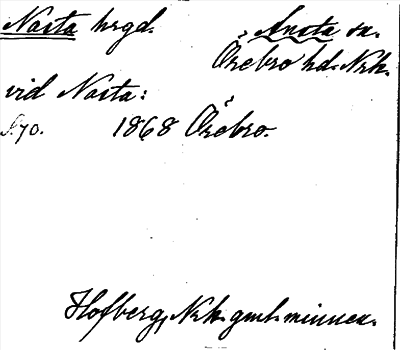 Nasta hrgd. Ånsta sn.
Örebro hd. Nrk.
vid Nasta:
S 70. 1868 Örebro.
Hofberg, Nrk. gml. minnen.